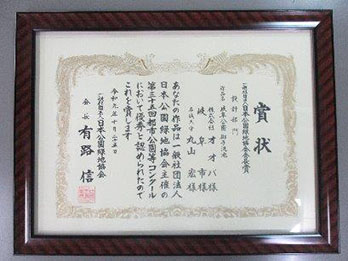 賞状
一般社団法人日本公園緑地協会会長賞
設計部門
岐阜市様
名城大学 丸山 宏様
あなたの作品は一般社団法人
日本公園緑地協会主催の
第三十五回都市公園等コンクール
において優秀と認められたので
これを賞します
令和元年十月二十五日
一般社団法人日本公園緑地協会
会長 有路 信